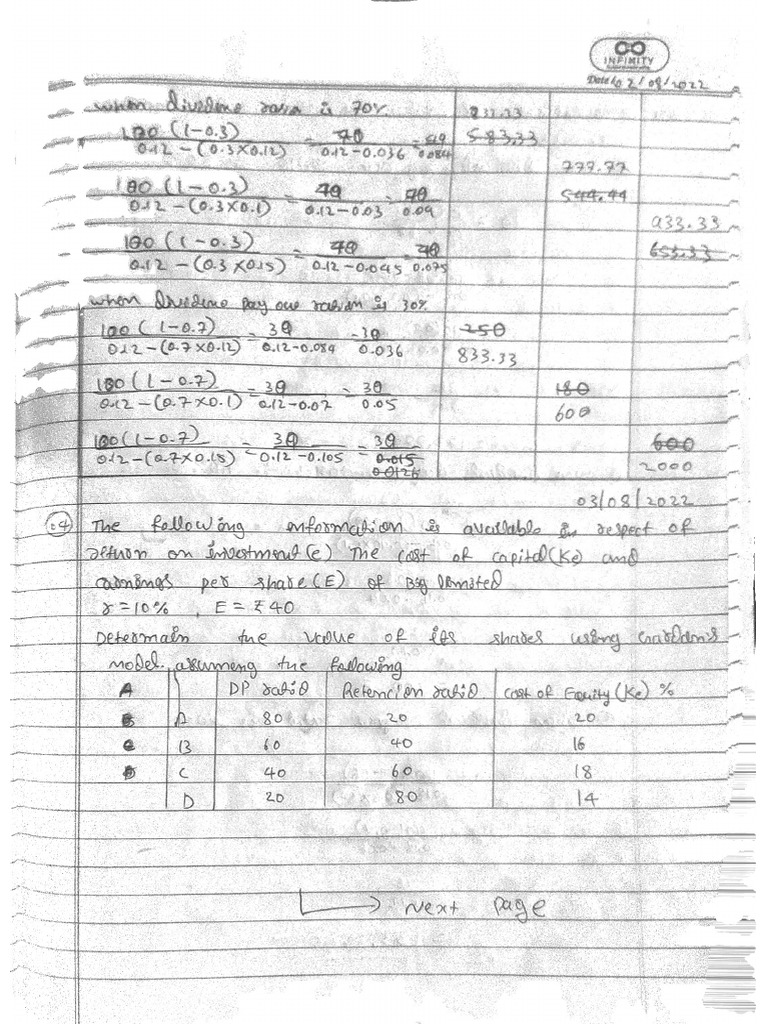 INFINITY
Date 02/08/2022
when dividend ratio is 70%. 833.33
100 (1-0.3) / 0.12 - (0.3x0.12) = 70 / 0.12-0.036 = 70 / 0.084 583.33
777.77
100 (1-0.3) / 0.12 - (0.3x0.1) = 70 / 0.12-0.03 = 70 / 0.09 544.44
933.33
100 (1-0.3) / 0.12 - (0.3x0.15) = 70 / 0.12-0.045 = 70 / 0.075 653.33
when dividend pay out ration is 30%
100 (1-0.7) / 0.12-(0.7x0.12) = 30 / 0.12-0.084 = 30 / 0.036 250
833.33
100 (1-0.7) / 0.12-(0.7x0.1) = 30 / 0.12-0.07 = 30 / 0.05 180
600
100 (1-0.7) / 0.12-(0.7x0.15) = 30 / 0.12-0.105 = 30 / 0.015 600
2000
03/08/2022
04 The following information is available in respect of
return on investment (e) The cost of capital (Ke) and
earnings per share (E) of limited
r = 10% , E = ₹ 40
Determain the value of its shares using
model. assuming the following
A DP ratio Retencion ratio cost of Equity (Ke) %
B A 80 20 20
C B 60 40 16
D C 40 60 18
D 20 80 14
Next page